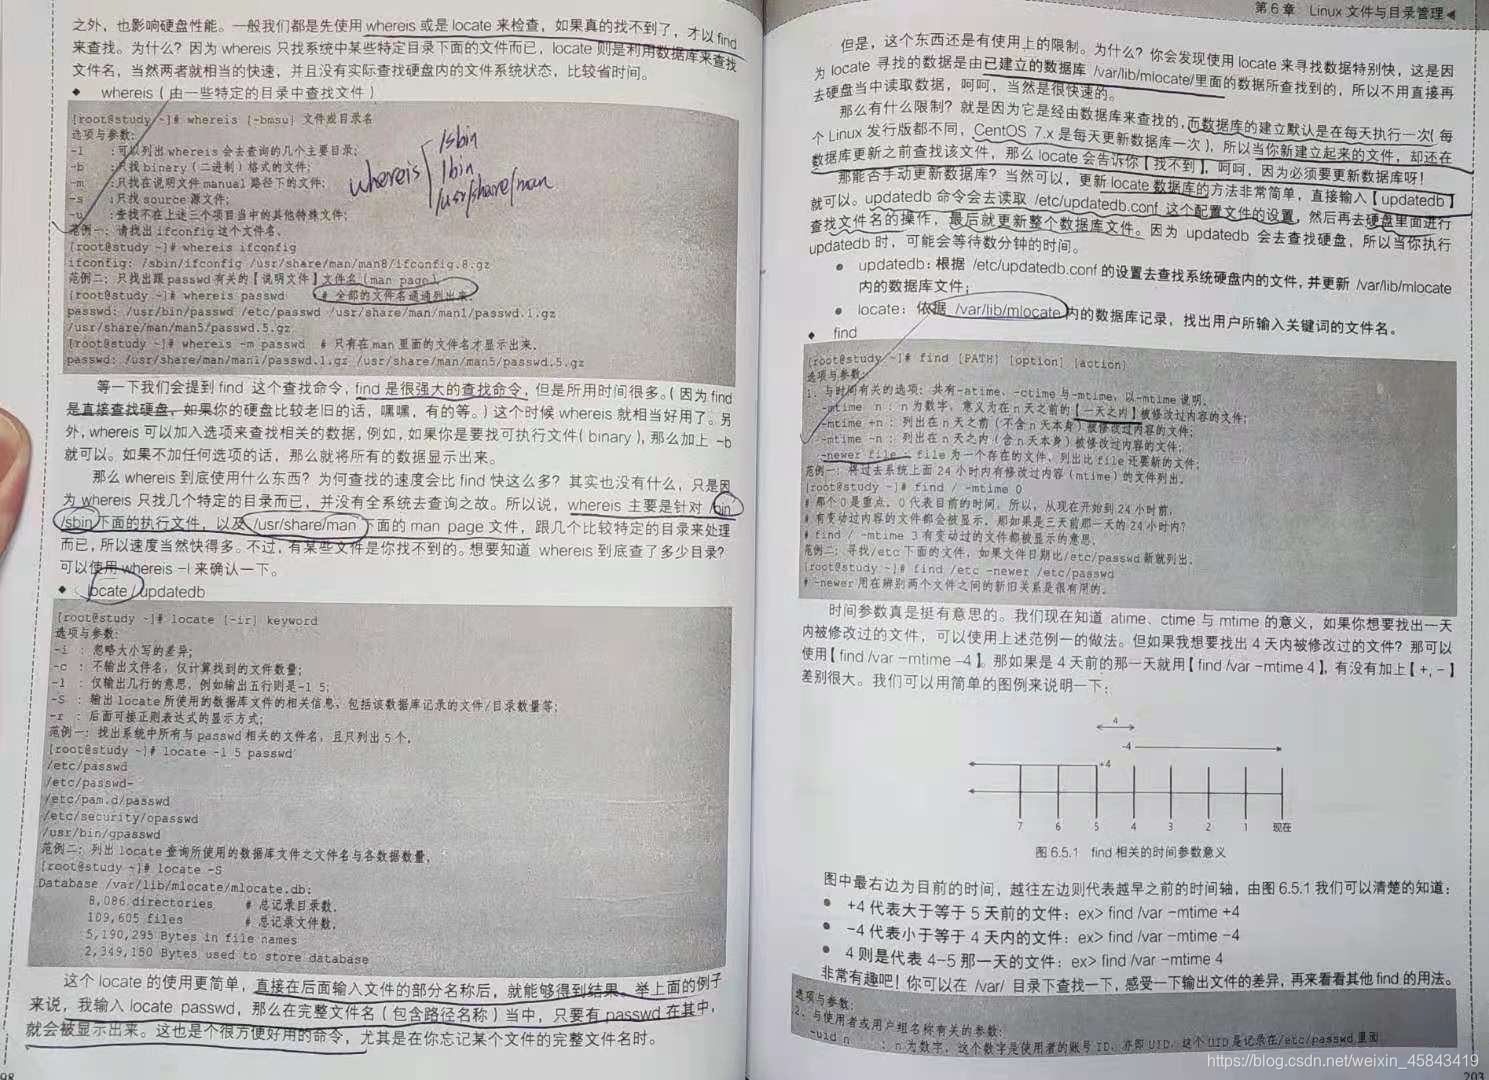 之外，也影响硬盘性能。一般我们都是先使用 whereis 或是 locate 来检查，如果真的找不到了，才以 find
来查找。为什么？因为 whereis 只找系统中某些特定目录下面的文件而已，locate 则是利用数据库来查找
文件名，当然两者就相当的快速，并且没有实际查找硬盘内的文件系统状态，比较省时间。
◆ whereis（由一些特定的目录中查找文件）
[root@study ~]# whereis [-bmsu] 文件或目录名
选项与参数:
-l :可以列出 whereis 会去查询的几个主要目录;
-b :只找 binary（二进制）格式的文件;
-m :只找在说明文件 manual 路径下的文件;
-s :只找 source 源文件;
-u :查找不在上述三个项目当中的其他特殊文件;
范例一：请找出 ifconfig 这个文件名。
[root@study ~]# whereis ifconfig
ifconfig: /sbin/ifconfig /usr/share/man/man8/ifconfig.8.gz
范例二：只找出跟 passwd 有关的【说明文件】文件名（man page）。
[root@study ~]# whereis passwd # 全部的文件名通通列出来。
passwd: /usr/bin/passwd /etc/passwd /usr/share/man/man1/passwd.1.gz
/usr/share/man/man5/passwd.5.gz
[root@study ~]# whereis -m passwd # 只有在 man 里面的文件名才显示出来。
passwd: /usr/share/man/man1/passwd.1.gz /usr/share/man/man5/passwd.5.gz
whereis
/sbin
/bin
/usr/share/man
等一下我们会提到 find 这个查找命令，find 是很强大的查找命令，但是所用时间很多。（因为 find
是直接查找硬盘，如果你的硬盘比较老旧的话，嘿嘿，有的等。）这个时候 whereis 就相当好用了。另
外，whereis 可以加入选项来查找相关的数据，例如，如果你是要找可执行文件（binary），那么加上 -b
就可以。如果不加任何选项的话，那么就将所有的数据显示出来。
那么 whereis 到底使用什么东西？为何查找的速度会比 find 快这么多？其实也没有什么，只是因
为 whereis 只找几个特定的目录而已，并没有全系统去查询之故。所以说，whereis 主要是针对 /bin
/sbin 下面的执行文件，以及 /usr/share/man 下面的 man page 文件，跟几个比较特定的目录来处理
而已，所以速度当然快得多。不过，有某些文件是你找不到的。想要知道 whereis 到底查了多少目录？
可以使用 whereis -l 来确认一下。
◆ locate / updatedb
[root@study ~]# locate [-ir] keyword
选项与参数:
-i ：忽略大小写的差异;
-c ：不输出文件名，仅计算找到的文件数量;
-l ：仅输出几行的意思，例如输出五行则是-l 5;
-S ：输出 locate 所使用的数据库文件的相关信息，包括该数据库记录的文件/目录数量等;
-r ：后面可接正则表达式的显示方式;
范例一：找出系统中所有与 passwd 相关的文件名，且只列出 5 个。
[root@study ~]# locate -l 5 passwd
/etc/passwd
/etc/passwd-
/etc/pam.d/passwd
/etc/security/opasswd
/usr/bin/gpasswd
范例二：列出 locate 查询所使用的数据库文件之文件名与各数据数量。
[root@study ~]# locate -S
Database /var/lib/mlocate/mlocate.db:
8,086 directories # 总记录目录数。
109,605 files # 总记录文件数。
5,190,295 Bytes in file names
2,349,150 Bytes used to store database
这个 locate 的使用更简单，直接在后面输入文件的部分名称后，就能够得到结果。举上面的例子
来说，我输入 locate passwd，那么在完整文件名（包含路径名称）当中，只要有 passwd 在其中，
就会被显示出来。这也是个很方便好用的命令，尤其是在你忘记某个文件的完整文件名时。
98
第 6 章 Linux 文件与目录管理◀
但是，这个东西还是有使用上的限制。为什么？你会发现使用 locate 来寻找数据特别快，这是因
为 locate 寻找的数据是由已建立的数据库 /var/lib/mlocate/里面的数据所查找到的，所以不用直接再
去硬盘当中读取数据，呵呵，当然是很快速的。
那么有什么限制？就是因为它是经由数据库来查找的，而数据库的建立默认是在每天执行一次（每
个 Linux 发行版都不同，CentOS 7.x 是每天更新数据库一次），所以当你新建立起来的文件，却还在
数据库更新之前查找该文件，那么 locate 会告诉你【找不到】，呵呵，因为必须要更新数据库呀！
那能否手动更新数据库？当然可以，更新 locate 数据库的方法非常简单，直接输入【updatedb】
就可以。updatedb 命令会去读取 /etc/updatedb.conf 这个配置文件的设置，然后再去硬盘里面进行
查找文件名的操作，最后就更新整个数据库文件。因为 updatedb 会去查找硬盘，所以当你执行
updatedb 时，可能会等待数分钟的时间。
● updatedb：根据 /etc/updatedb.conf 的设置去查找系统硬盘内的文件，并更新 /var/lib/mlocate
内的数据库文件；
● locate：依据 /var/lib/mlocate 内的数据库记录，找出用户所输入关键词的文件名。
◆ find
[root@study ~]# find [PATH] [option] [action]
选项与参数:
1. 与时间有关的选项：共有-atime、-ctime 与-mtime，以-mtime 说明。
-mtime n ：n 为数字，意义为在 n 天之前的【一天之内】被修改过内容的文件;
-mtime +n ：列出在 n 天之前（不含 n 天本身）被修改过内容的文件;
-mtime -n ：列出在 n 天之内（含 n 天本身）被修改过内容的文件;
-newer file ：file 为一个存在的文件，列出比 file 还要新的文件;
范例一：将过去系统上面 24 小时内有修改过内容（mtime）的文件列出。
[root@study ~]# find / -mtime 0
# 那个 0 是重点，0 代表目前的时间，所以，从现在开始到 24 小时前，
# 有变动过内容的文件都会被显示，那如果是三天前那一天的 24 小时内?
# find / -mtime 3 有变动过的文件都被显示的意思。
范例二：寻找/etc 下面的文件，如果文件日期比/etc/passwd 新就列出。
[root@study ~]# find /etc -newer /etc/passwd
# -newer 用在辨别两个文件之间的新旧关系是很有用的。
时间参数真是挺有意思的。我们现在知道 atime、ctime 与 mtime 的意义，如果你想要找出一天
内被修改过的文件，可以使用上述范例一的做法。但如果我想要找出 4 天内被修改过的文件？那可以
使用【find /var -mtime -4】。那如果是 4 天前的那一天就用【find /var -mtime 4】，有没有加上【+，-】
差别很大。我们可以用简单的图例来说明一下：
4
-4
+4
7 6 5 4 3 2 1 现在
图 6.5.1 find 相关的时间参数意义
图中最右边为目前的时间，越往左边则代表越早之前的时间轴，由图 6.5.1 我们可以清楚的知道：
● +4 代表大于等于 5 天前的文件：ex> find /var -mtime +4
● -4 代表小于等于 4 天内的文件：ex> find /var -mtime -4
● 4 则是代表 4-5 那一天的文件：ex> find /var -mtime 4
非常有趣吧！你可以在 /var/ 目录下查找一下，感受一下输出文件的差异，再来看看其他 find 的用法。
选项与参数:
2. 与使用者或用户组名称有关的参数:
-uid n ：n 为数字，这个数字是使用者的账号 ID，亦即 UID，这个 UID 是记录在/etc/passwd 里面
203
https://blog.csdn.net/weixin_45843419